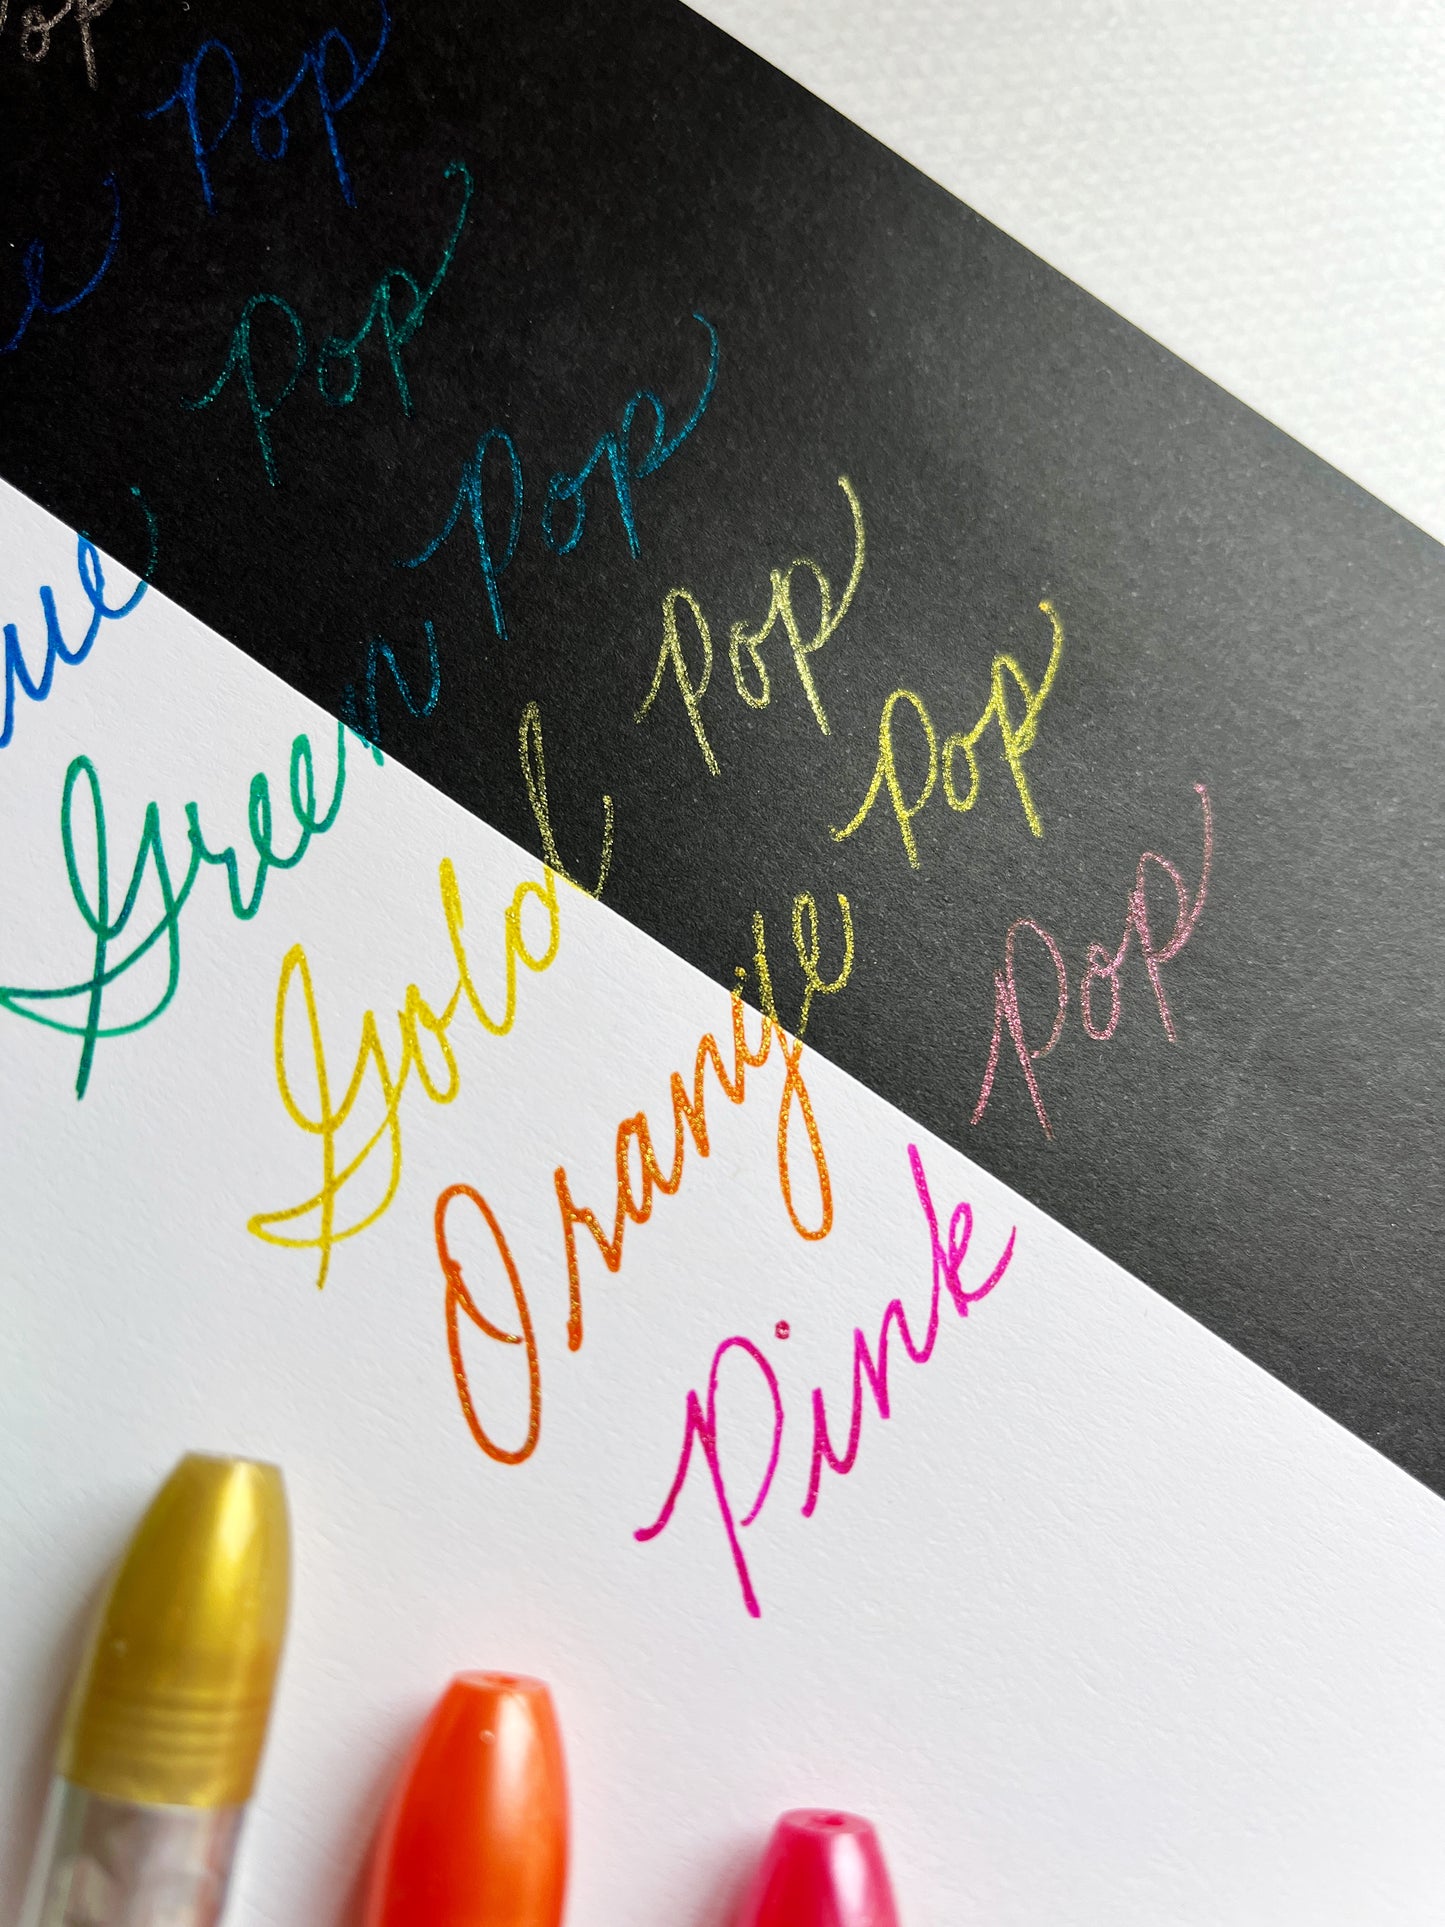 op
e Pop
ue Pop
Green Pop
Gold Pop
Orange Pop
Pink Pop